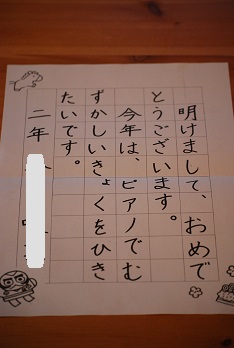 明けまして、おめで
とうございます。
今年は、ピアノでむ
ずかしいきょくをひき
たいです。
二年